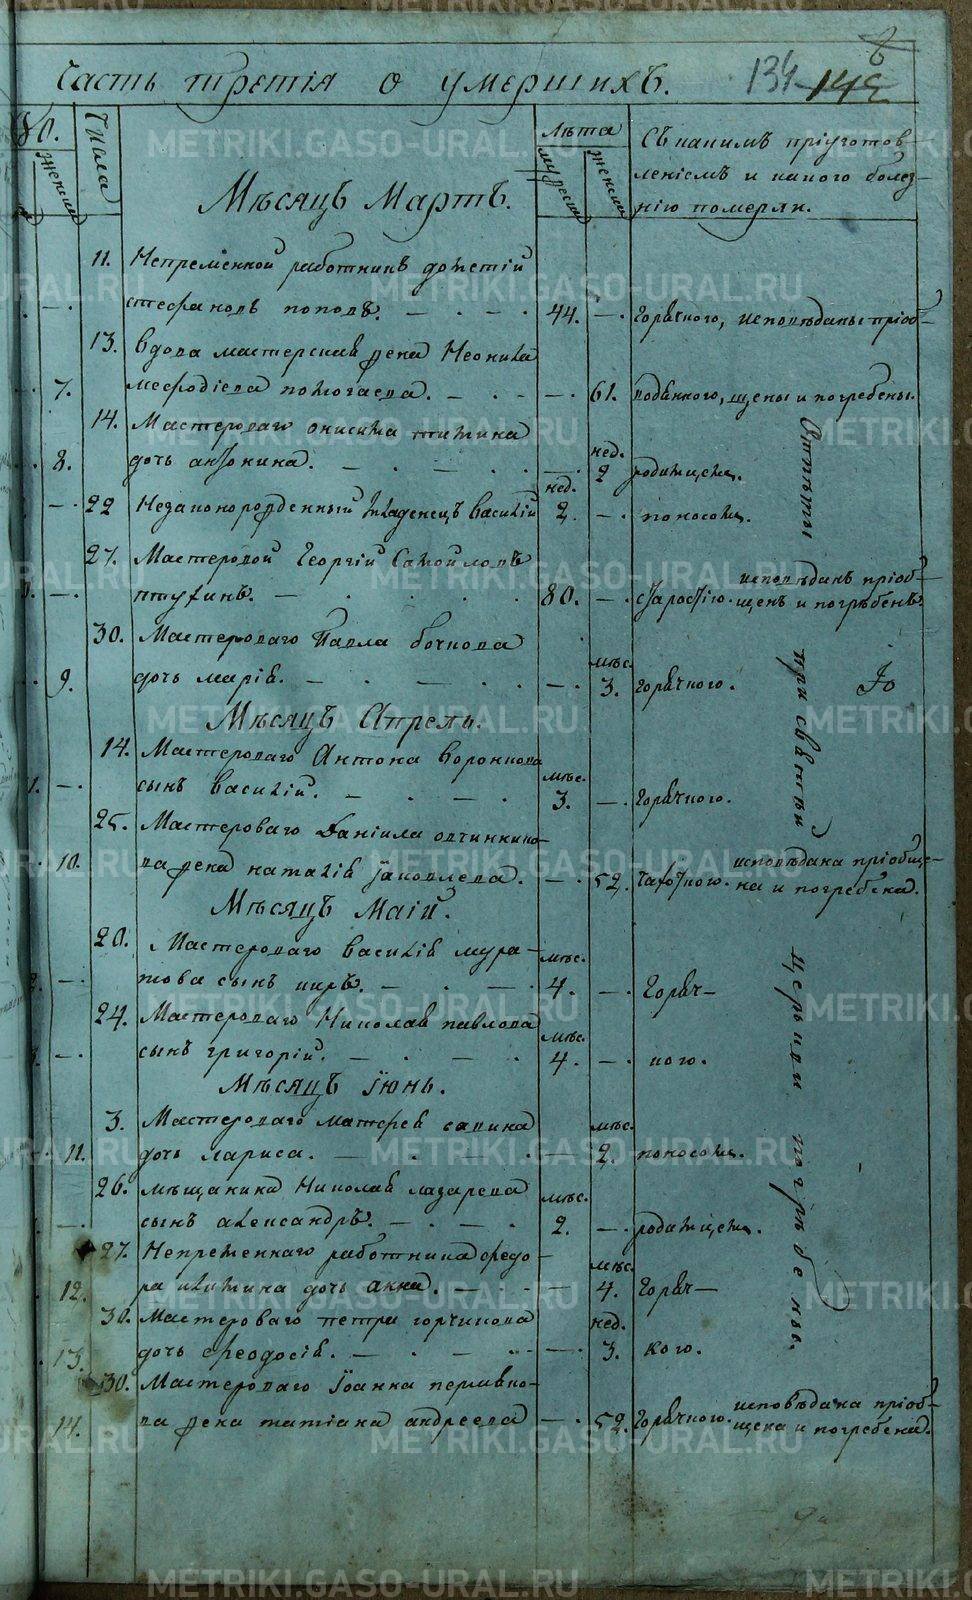 Часть третія о умершихъ.
134 145
Числа
Женска
Лѣта
мужеска
женска
Съ какимъ пріуготов-
леніемъ и какого болез-
нію померли.
Мѣсяцъ Мартъ.
11. Непременной работникъ
Стефановъ поповъ. 44. Горячного, исповѣданы пріоб-
13. Вдова мастерская жена Неонила
7. мефодіева помогаева. 61. щены и погребены.
14. Мастероваго онисима
8. дочь антонина. нед. 2 родимцемъ.
22 Незаконорожденный младенецъ василій нед. 2. поносомъ.
27. Мастеровой Георгій Самойловъ
птухинъ. 80. старостію. исповѣданъ пріоб-
щенъ и погребенъ.
30. Мастероваго Павла бочкова
9. дочь марія. мѣс. 3. Горячного.
Мѣсяцъ Апрель.
14. Мастероваго Антона воронкова
1. сынъ василій. мѣс. 3. Горячного.
25. Мастероваго Даніила овчинкино-
10. ва жена наталія Іаковлева. 52. Чахотного. исповѣдана пріобще-
на и погребена.
Мѣсяцъ Маій.
20. Мастероваго василія мура-
това сынъ киръ. мѣс. 4. Горяч-
24. Мастероваго Николая павлова
сынъ григорій. мѣс. 4. кого.
Мѣсяцъ Іюнь.
3. Мастероваго матфея савина
11. дочь лариса. мѣс. 2. поносомъ.
26. мѣщанина Николая лазарева
сынъ александръ. мѣс. 2. родимцемъ.
27. Непременнаго работника федо-
12. ра дочь анна. мѣс. 4. Горяч-
30. Мастероваго петра горчикова
13. дочь феодосія. нед. 3. кого.
30. Мастероваго Іоанна
14. ва жена татіана андреева 52. Горячного. исповѣдана пріоб-
щена и погребена.
Отпѣты при святѣй церькви
METRIKI.GASO-URAL.RU